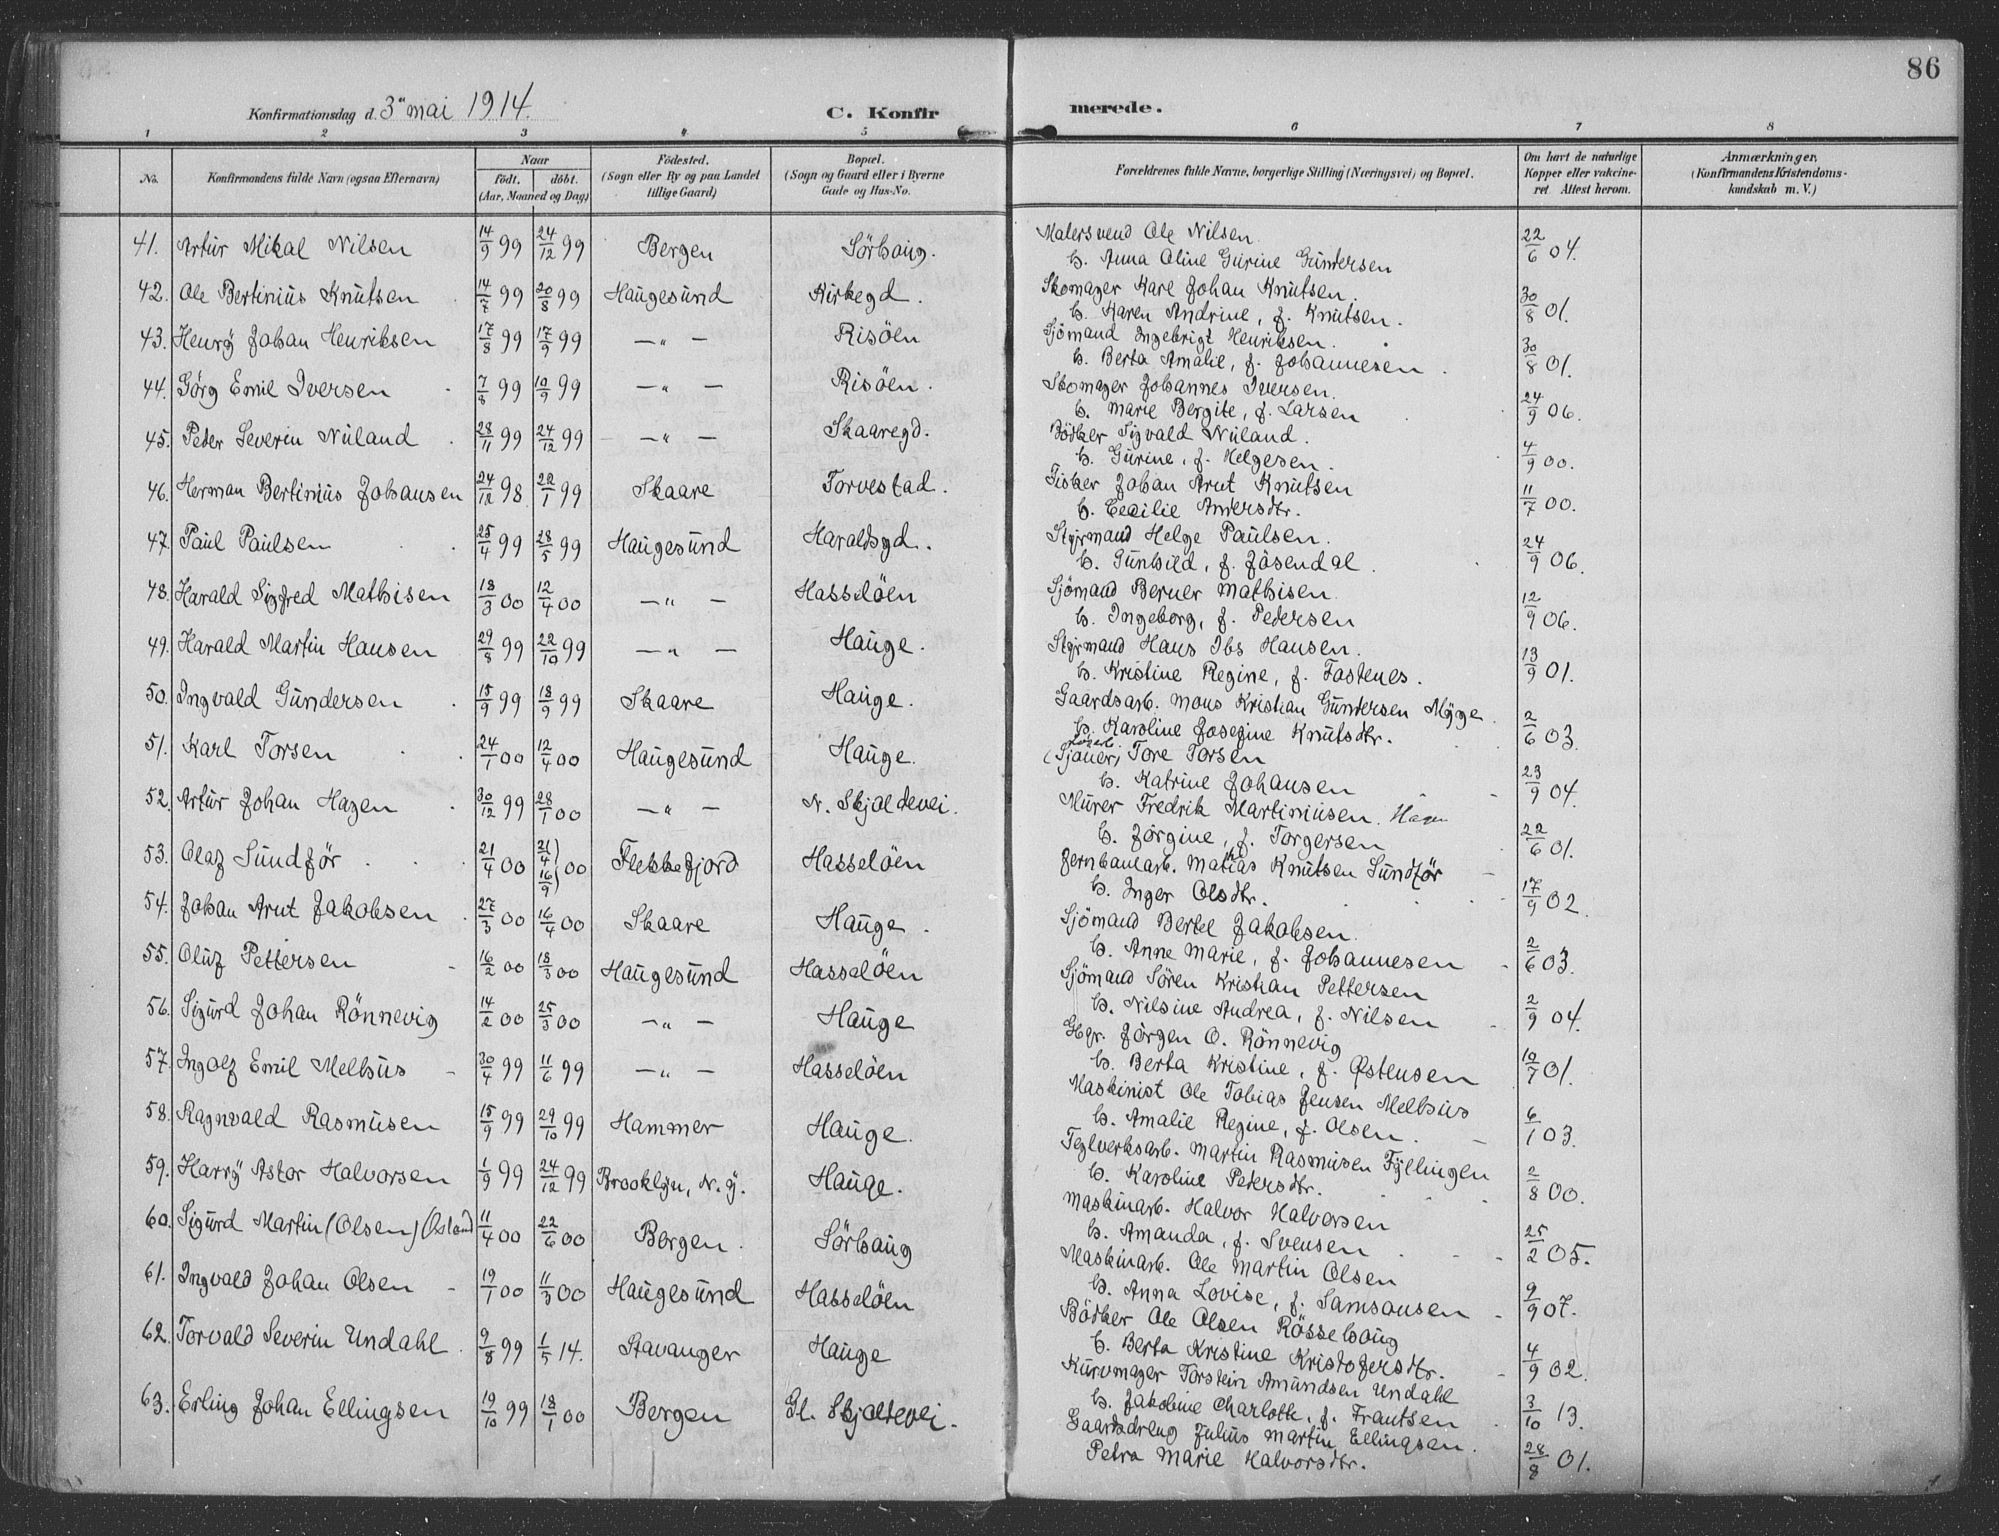 86
Konfirmationsdag d. 3" mai 1914.
C. Konfirmerede.
1 2 3 4 5 6 7 8
No.
Konfirmandens fulde Navn (ogsaa Efternavn)
Naar
födt. döbt.
(Aar, Maaned og Dag)
Födested.
(Sogn eller By og paa Landet
tillige Gaard)
Bopæl.
(Sogn og Gaard eller i Byerne
Gade og Hus-No.
Forældrenes fulde Navne, borgerlige Stilling (Næringsvei) og Bopæl.
Om havt de naturlige
Kopper eller vakcine-
ret. Attest herom.
Anmærkninger.
(Konfirmandens Kristendoms-
kundskab m. V.)
41. Artur Mikal Nilsen 14/9 99 24/12 99 Bergen Sörhaug. Malersvend Ole Nilsen
h. Anna Oline Gurine Gundersen 22/6 04.
42. Ole Bertinius Knutsen 14/7 99 20/8 99 Haugesund Kirkegd. Skomager Karl Johan Knutsen.
h. Karen Andrine, f. Knutsen. 30/8 01.
43. Henry Johan Henriksen 17/8 99 17/9 99 —"— Risöen Sjömand Ingebrigt Henriksen.
h. Berta Amalie, f. Johannesen. 30/8 01.
44. Görg Emil Iversen 7/8 99 10/9 99 —"— Risöen. Skomager Johannes Iversen.
h. Marie Bergite, f. Larsen 24/9 06.
45. Peder Severin Nuland 28/11 99 24/12 99 —"— Skaaregd. Bödker Sigvald Nuland.
h. Gurine, f. Helgesen. 4/9 00.
46. Herman Bertinius Johansen 24/12 98 22/1 99 Skaare Torvestad. Fisker Johan Arnt Knutsen
h. Cecilie Andersdtr. 11/7 00.
47. Paul Paulsen 25/4 99 28/5 99 Haugesund Haraldsgd. Styrmand Helge Paulsen.
h. Gunhild, f. Jösendal. 24/9 06.
48. Harald Sigfred Mathisen 18/3 00 12/4 00 —"— Hasselöen Sjömand Berner Mathisen.
h. Ingeborg, f. Pedersen 12/9 06.
49. Harald Martin Hansen 29/8 99 22/10 99 —"— Hauge. Styrmand Hans Ibs Hansen.
h. Kristine Regine, f. Fastenes. 13/9 01.
50. Ingvald Gundersen 15/9 99 18/9 99 Skaare Hauge. Gaardsarb. Mons Kristian Gundersen Myge.
h. Karoline Josefine Knutsdtr. 2/6 03.
51. Karl Torsen 24/1 00 12/4 00 Haugesund Hauge. (Sjauer) Tore Torsen
h. Katrine Johansen 23/9 04.
52. Artur Johan Hagen 30/12 99 28/1 00 —"— N. Skjoldevei. Murer Fredrik Martiniusen. Hagen
h. Jörgine, f. Torgersen 22/6 01.
53. Olaf Sundför 21/4 00 21/4 16/9) 00 Flekkefjord Hasselöen Jernbanearb. Mathias Knutsen Sundför
h. Inger Olsdtr. 17/9 02.
54. Johan Arnt Jakobsen 27/3 00 16/4 00 Skaare Hauge. Sjömand Bertel Jakobsen.
h. Anne Marie, f. Johannesen 2/6 03.
55. Oluf Pettersen 16/2 00 18/3 00 Haugesund Hasselöen Sjömand Sören Kristian Pettersen
h. Nilsine Andrea, f. Nilsen 2/9 04.
56. Sigurd Johan Rönnevig 14/2 00 25/3 00 —"— Hauge Hgr. Jörgen O. Rönnevig
h. Berta Kristine, f. Østensen 19/7 01.
57. Ingolf Emil Melhus 30/4 99 11/6 99 —"— Hasselöen Maskinist Ole Tobias Jensen Melhus
h. Amalie Regine, f. Olsen. 6/1 03.
58. Ragnvald Rasmusen 15/9 99 29/10 99 Hammer Hauge. Teglverksarb. Martin Rasmusen Fyllingen
h. Karoline Petersdtr. 2/8 00.
59. Harry Astor Halvorsen 1/9 99 24/12 99 Brooklyn, N.Y. Hauge. Maskinarb. Halvor Halvorsen
h. Amanda, f. Svensen 25/2 05.
60. Sigurd Martin (Olsen) Østland 11/4 00 22/6 00 Bergen. Sörhaug Maskinarb. Ole Martin Olsen
h. Anna Lovise, f. Samsonsen 9/9 07.
61. Ingvald Johan Olsen 19/1 00 11/3 00 Haugesund Hasselöen Bödker Ole Olsen Rösselhaug
h. Berta Kristine Kristofersdtr. 4/9 02.
62. Torvald Severin Undahl 9/8 99 1/5 14. Stavanger Hauge Kurvmager Torstein Amundsen Undahl
h. Jakobine Charlotte, f. Frantsen 3/10 13.
63. Erling Johan Ellingsen 19/10 99 18/1 00 Bergen Gl. Skjoldevei. Gaardsdreng Julius Martin Ellingsen.
Petra Marie Halvorsdtr. 28/8 01.